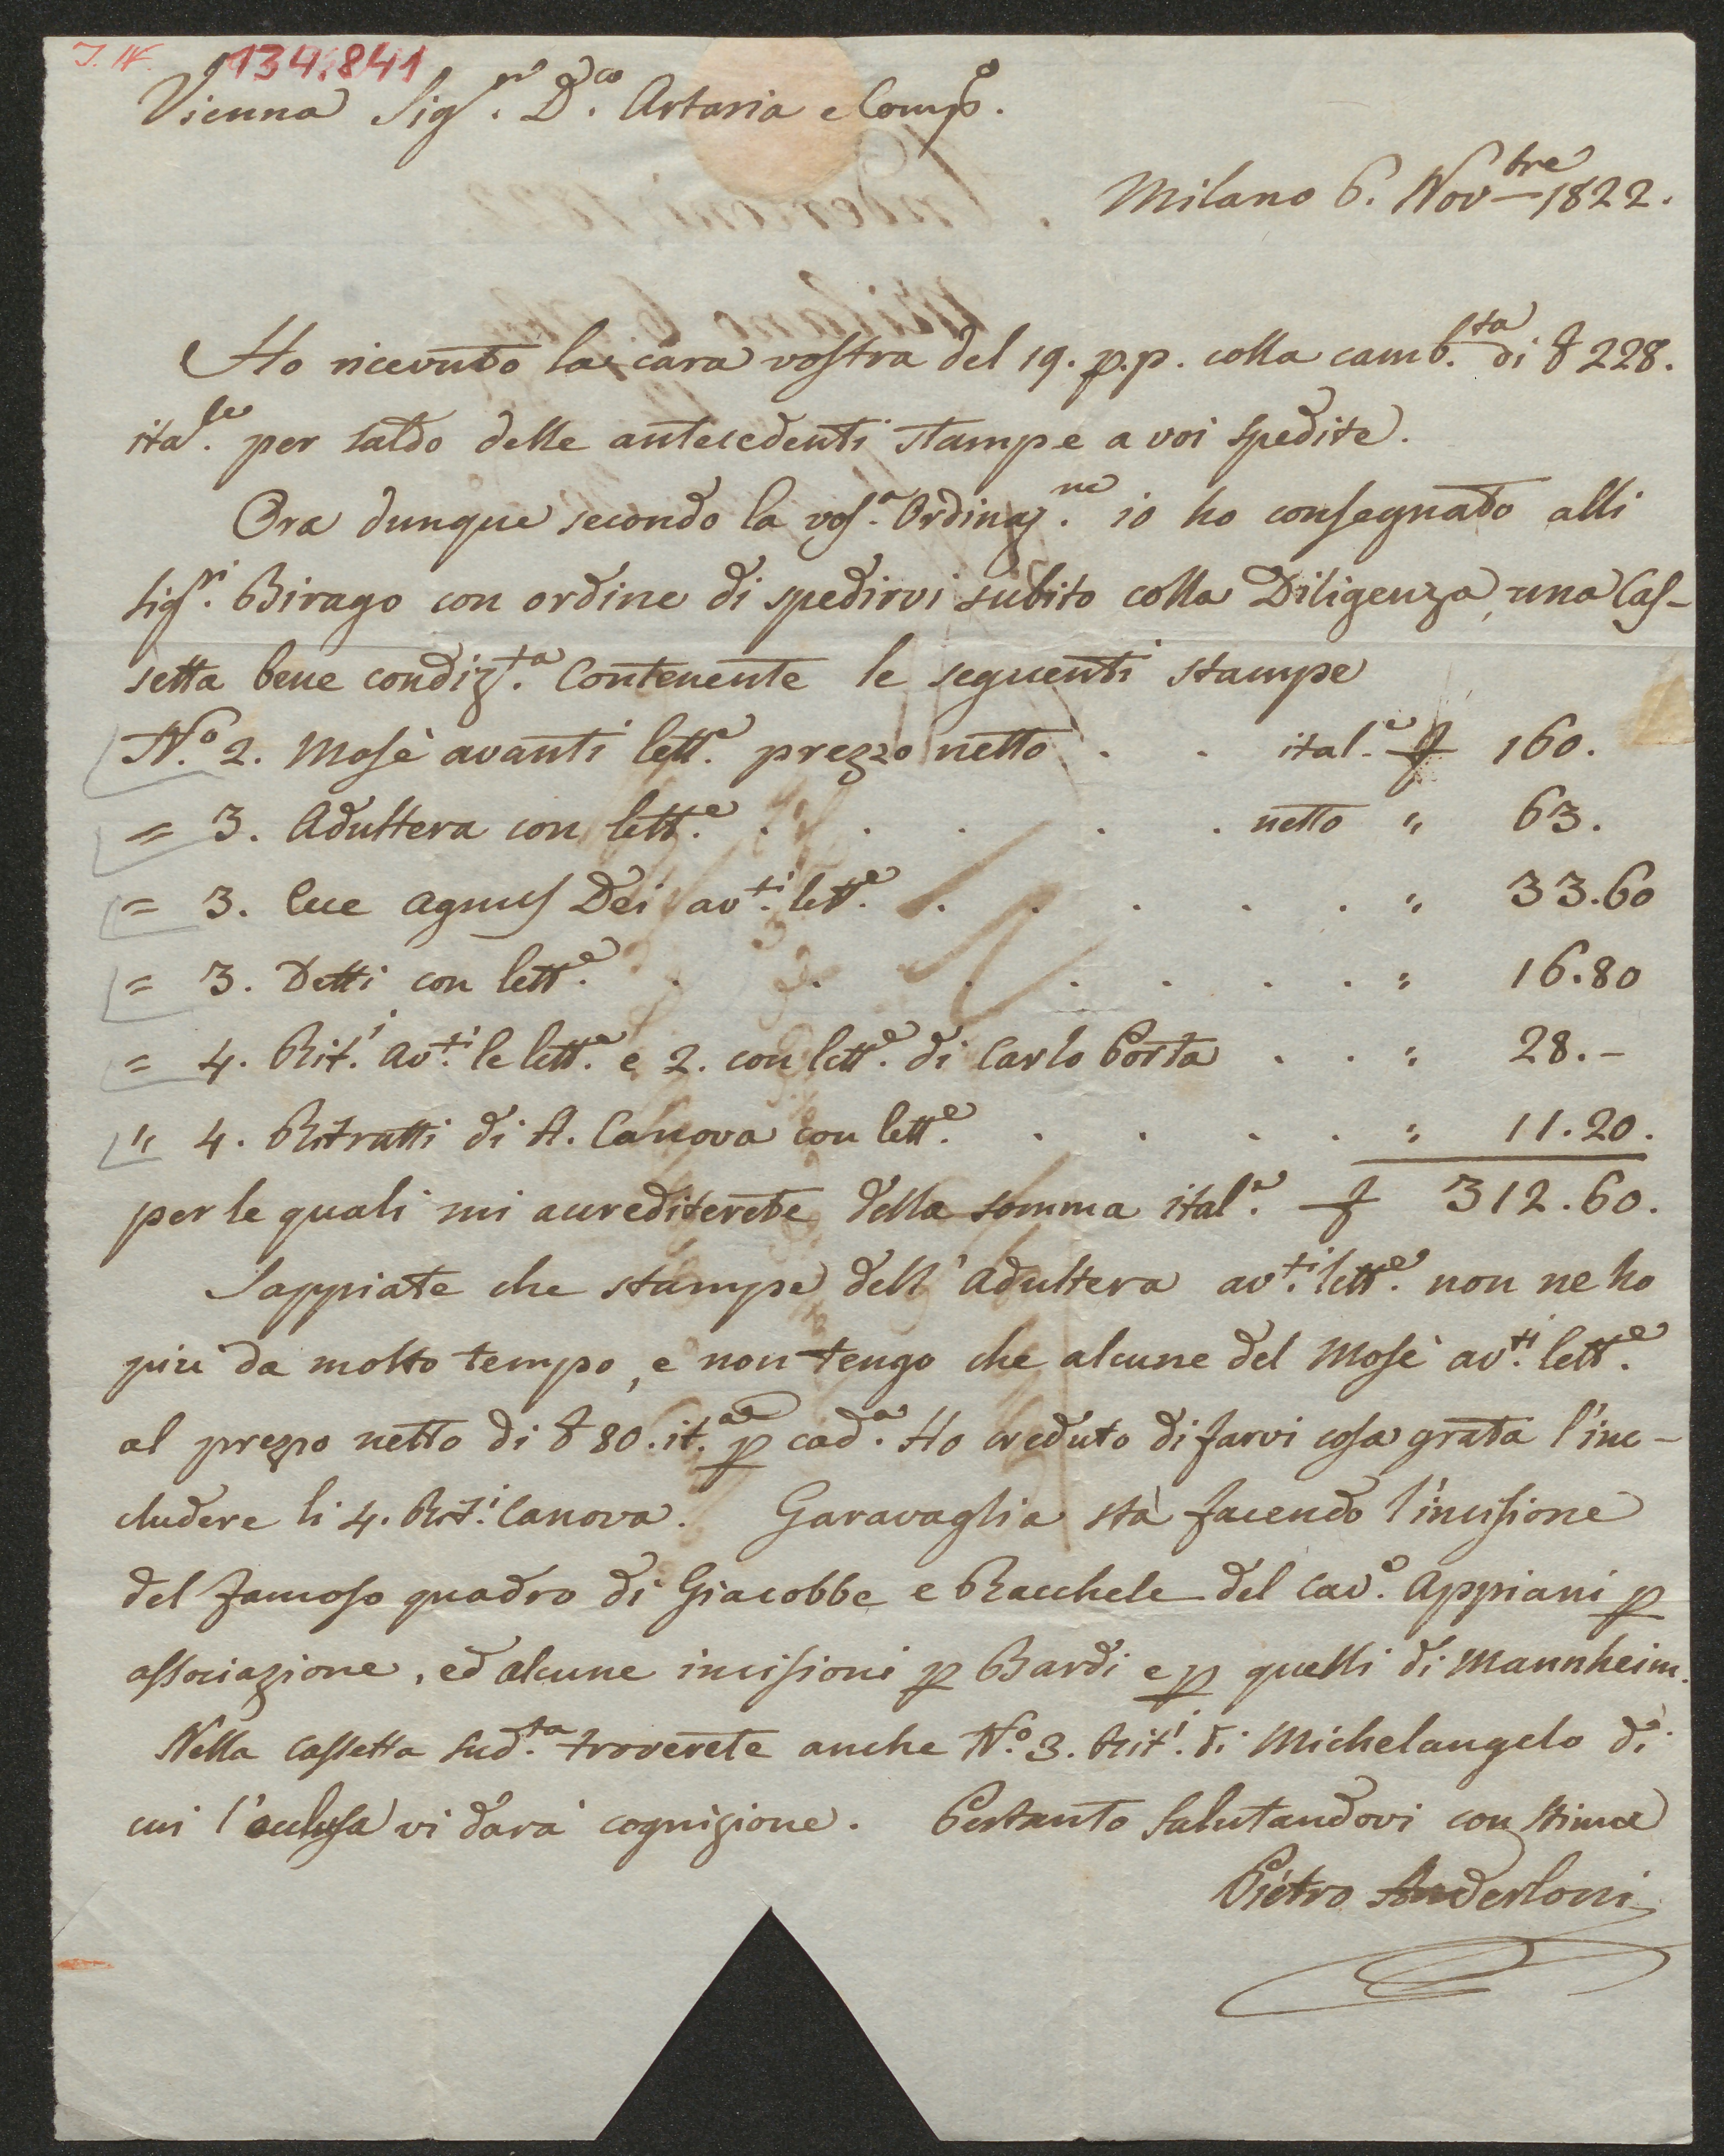 J. N. 134.841
Vienna Sig.ri D.co Artaria e Comp.o
Milano 6. Nov.bre 1822.
Ho ricevuto la cara vostra del 19. p.p. colla camb.ta di £ 228.
ital.e per saldo delle antecedenti stampe a voi spedite.
Ora dunque secondo la vos.a Ordinaz.ne io ho consegnato alli
Sig.ri Birago con ordine di spedirvi subito colla Diligenza, una Cas-
setta bene condiz.ta Contenente le seguenti stampe
N.o 2. Mosè avanti lett.e prezzo netto . . ital.e £ 160.
= 3. Adultera con lett.e . . . . . netto " 63.
= 3. Ecce agnus Dei av.ti lett.e . . . . . " 33.60
= 3. Detti con lett.e . . . . . . . " 16.80
= 4. Rit.i av.ti le lett.e e 2. con lett.e di Carlo Porta . . " 28.-
" 4. Ritratti di A. Canova con lett.e . . . . " 11.20.
per le quali mi accrediterete della somma ital.e £ 312.60.
Sappiate che stampe dell'Adultera av.ti lett.e non ne ho
più da molto tempo, e non tengo che alcune del Mosè av.ti lett.e
al prezzo netto di £ 80. it.ae p cad.a Ho creduto di farvi cosa grata l'inc-
cludere li 4. Rit.i Canova. Garavaglia stà facendo l'incisione
del famoso quadro di Giacobbe e Racchele del Cav.e Appiani p
associazione, ed alcune incisioni p Bardi e p quelli di Mannheim.
Nella cassetta sud.ta troverete anche N.o 3. Rit.i di Michelangelo di
cui l'acclusa vi darà cognizione. Pertanto salutandovi con stima
Pietro Anderloni